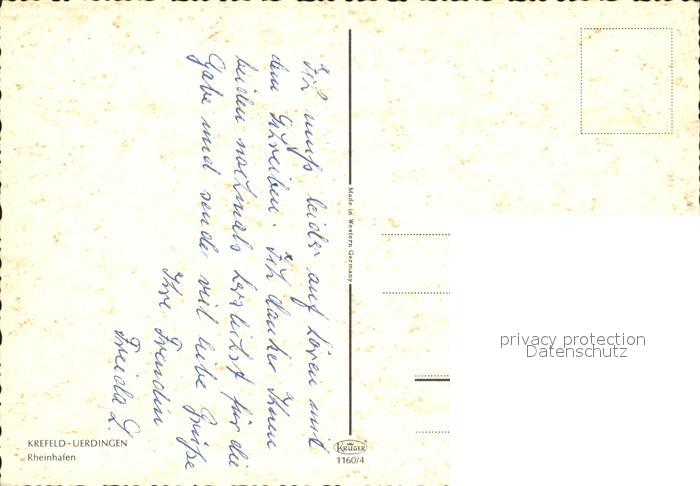 Ich muß leider aufhören mit
dem Schreiben. Ich danke Ihnen
beiden nochmals herzlichst für die
Gabe und sende viel liebe Grüße
Ihre Freundin
Frieda L.
Made in Western Germany
KREFELD - UERDINGEN
Rheinhafen
KRÜGER
1160/4
privacy protection
Datenschutz